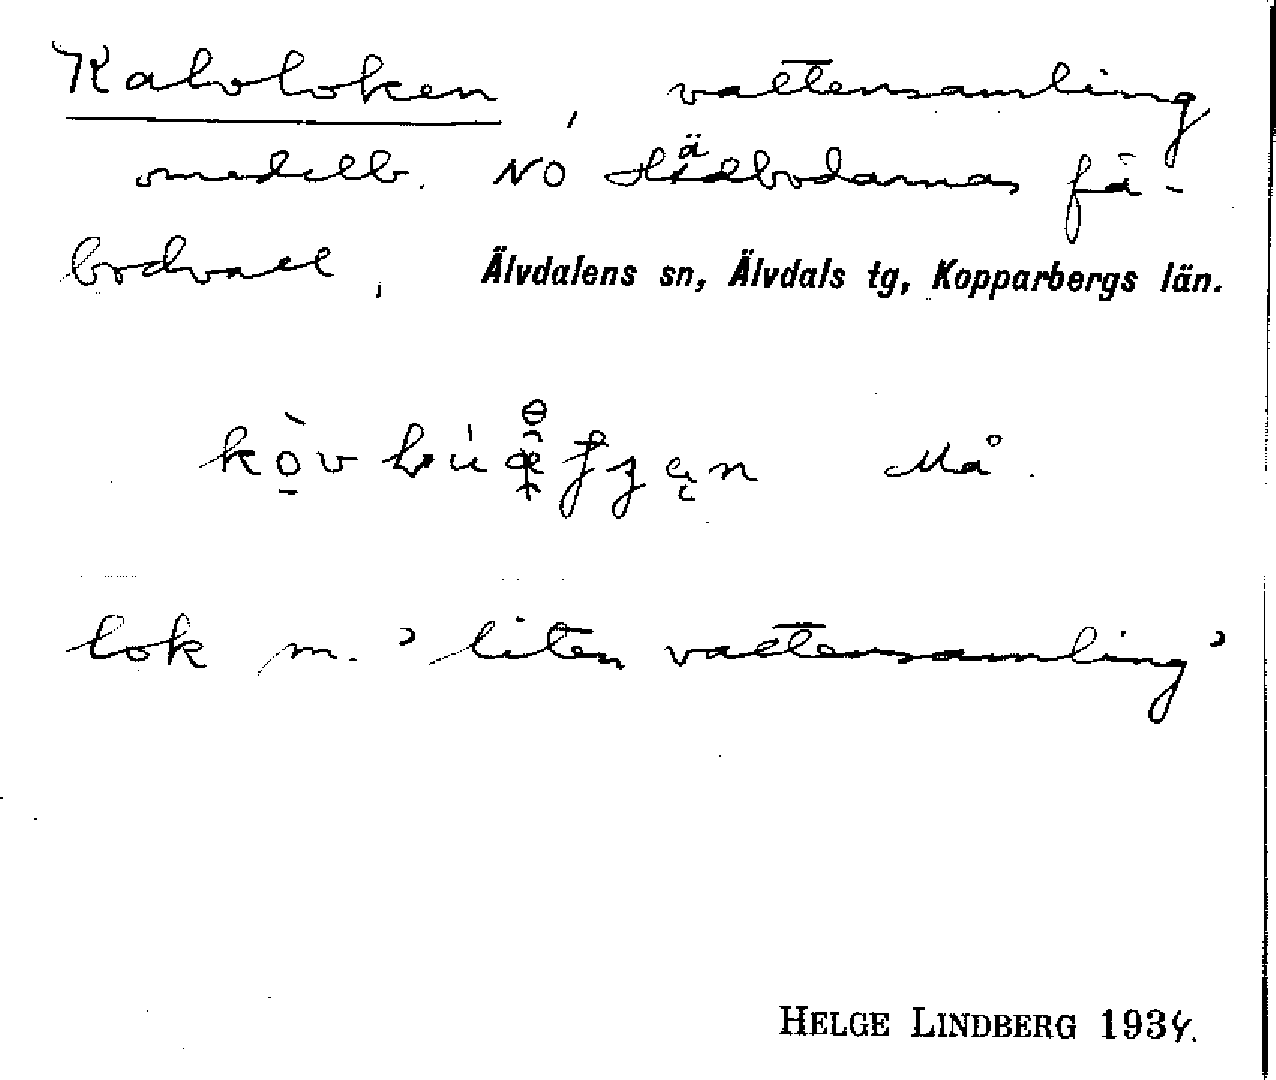 Kalvloken, vattensamling
omedelb. NO Hädbodarnas fä-
bodvall, Älvdalens sn, Älvdals tg, Kopparbergs län.
Må.
lok m. 'liten vattensamling'
HELGE LINDBERG 1934.